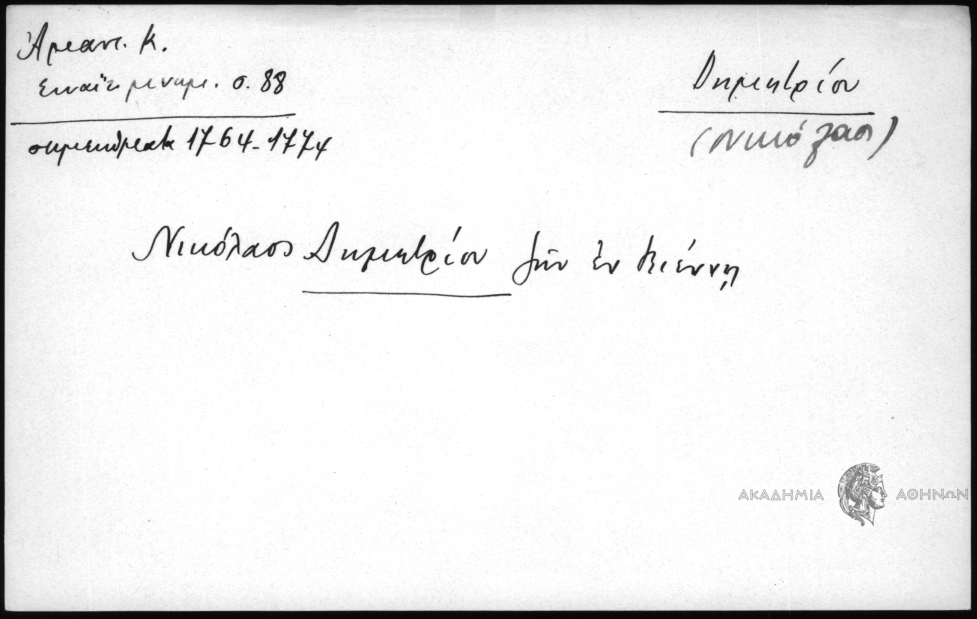 Ἀμαντ. Κ.
Σιναϊτ. μνημ. σ. 88
σημειώματα 1764-1774
Δημητρίου
(Νικόλαος)
Νικόλαος Δημητρίου ζῶν ἐν Βιέννῃ
ΑΚΑΔΗΜΙΑ ΑΘΗΝΩΝ